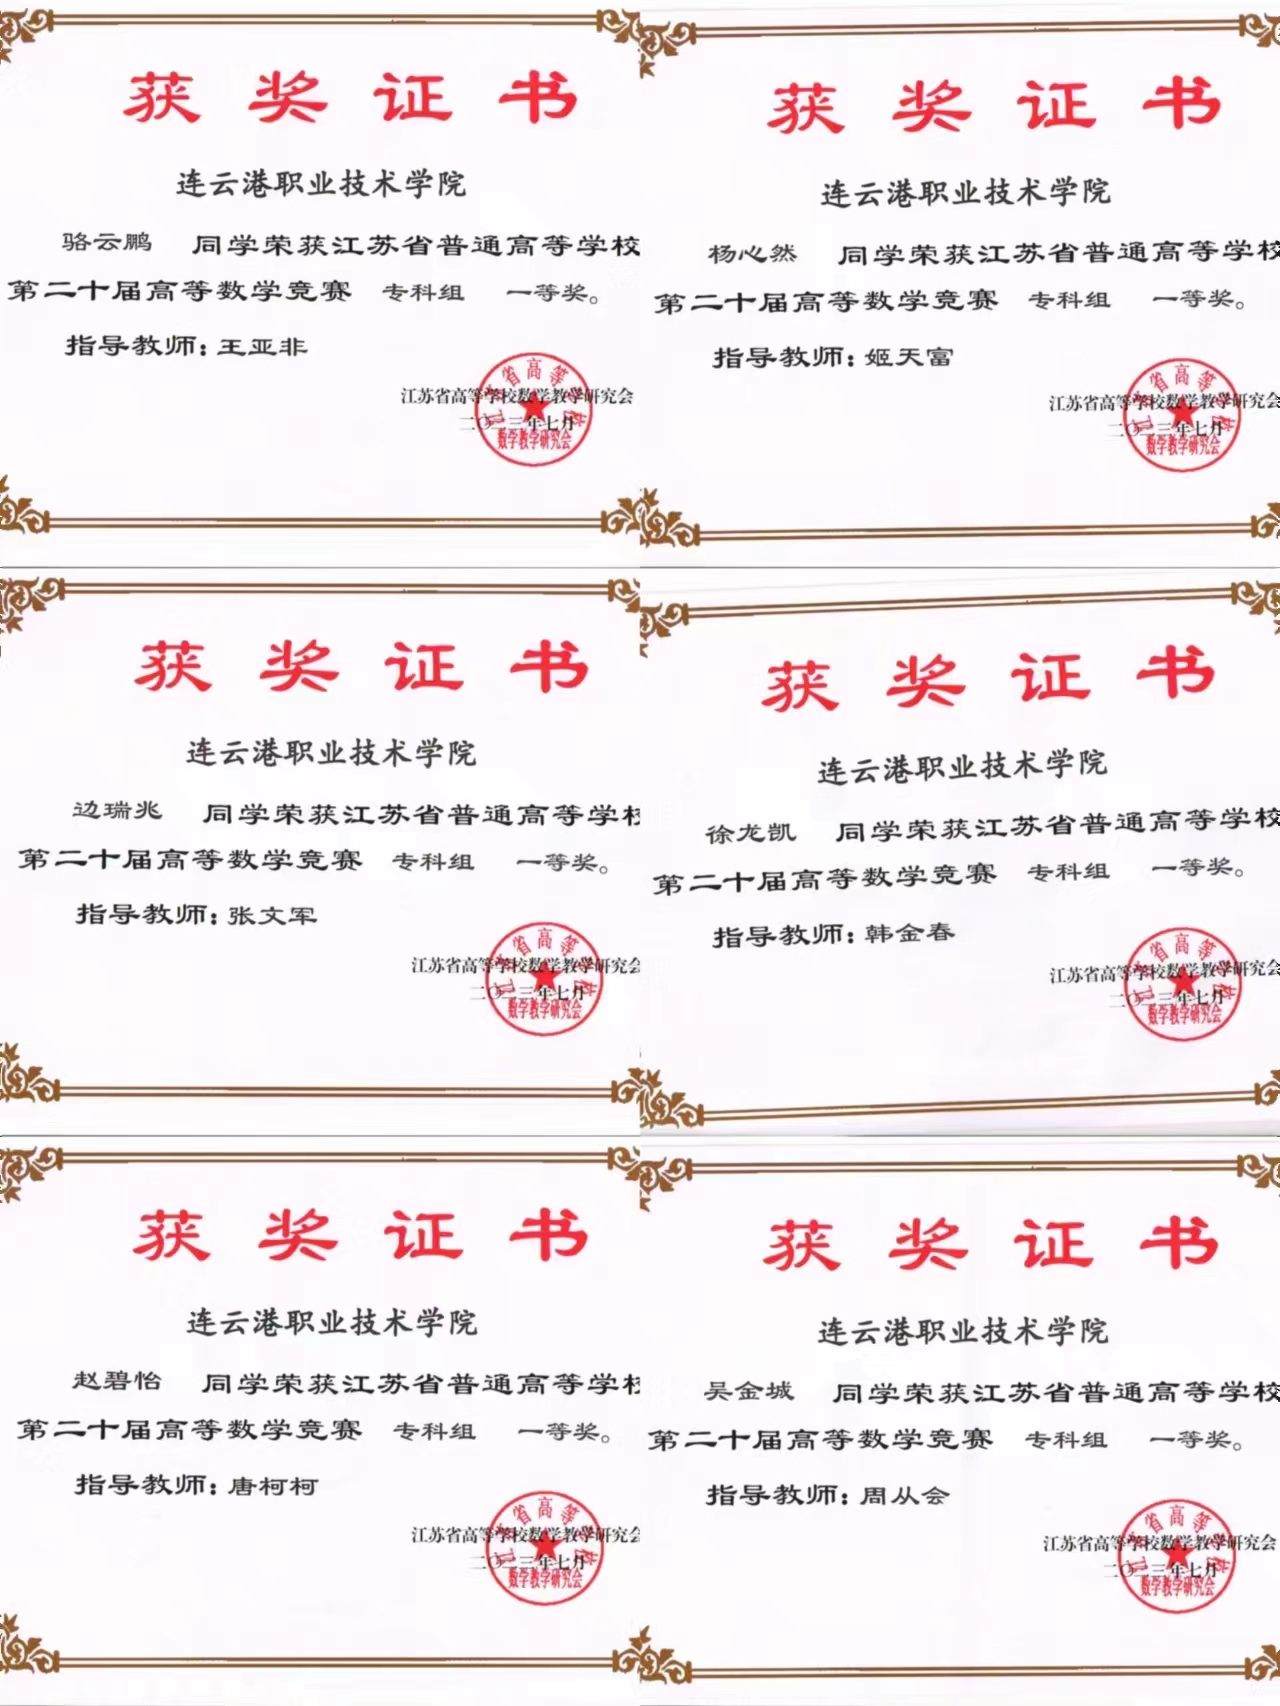 获奖证书
连云港职业技术学院
骆云鹏 同学荣获江苏省普通高等学校
第二十届高等数学竞赛 专科组 一等奖。
指导教师：王亚非
江苏省高等学校数学教学研究会
二〇二三年七月
数学教学研究会
获奖证书
连云港职业技术学院
杨心然 同学荣获江苏省普通高等学校
第二十届高等数学竞赛 专科组 一等奖。
指导教师：姬天富
江苏省高等学校数学教学研究会
二〇二三年七月
数学教学研究会
获奖证书
连云港职业技术学院
边瑞兆 同学荣获江苏省普通高等学校
第二十届高等数学竞赛 专科组 一等奖。
指导教师：张文军
江苏省高等学校数学教学研究会
二〇二三年七月
数学教学研究会
获奖证书
连云港职业技术学院
徐龙凯 同学荣获江苏省普通高等学校
第二十届高等数学竞赛 专科组 一等奖。
指导教师：韩金春
江苏省高等学校数学教学研究会
二〇二三年七月
数学教学研究会
获奖证书
连云港职业技术学院
赵碧怡 同学荣获江苏省普通高等学校
第二十届高等数学竞赛 专科组 一等奖。
指导教师：唐柯柯
江苏省高等学校数学教学研究会
二〇二三年七月
数学教学研究会
获奖证书
连云港职业技术学院
吴金城 同学荣获江苏省普通高等学校
第二十届高等数学竞赛 专科组 一等奖。
指导教师：周从会
江苏省高等学校数学教学研究会
二〇二三年七月
数学教学研究会